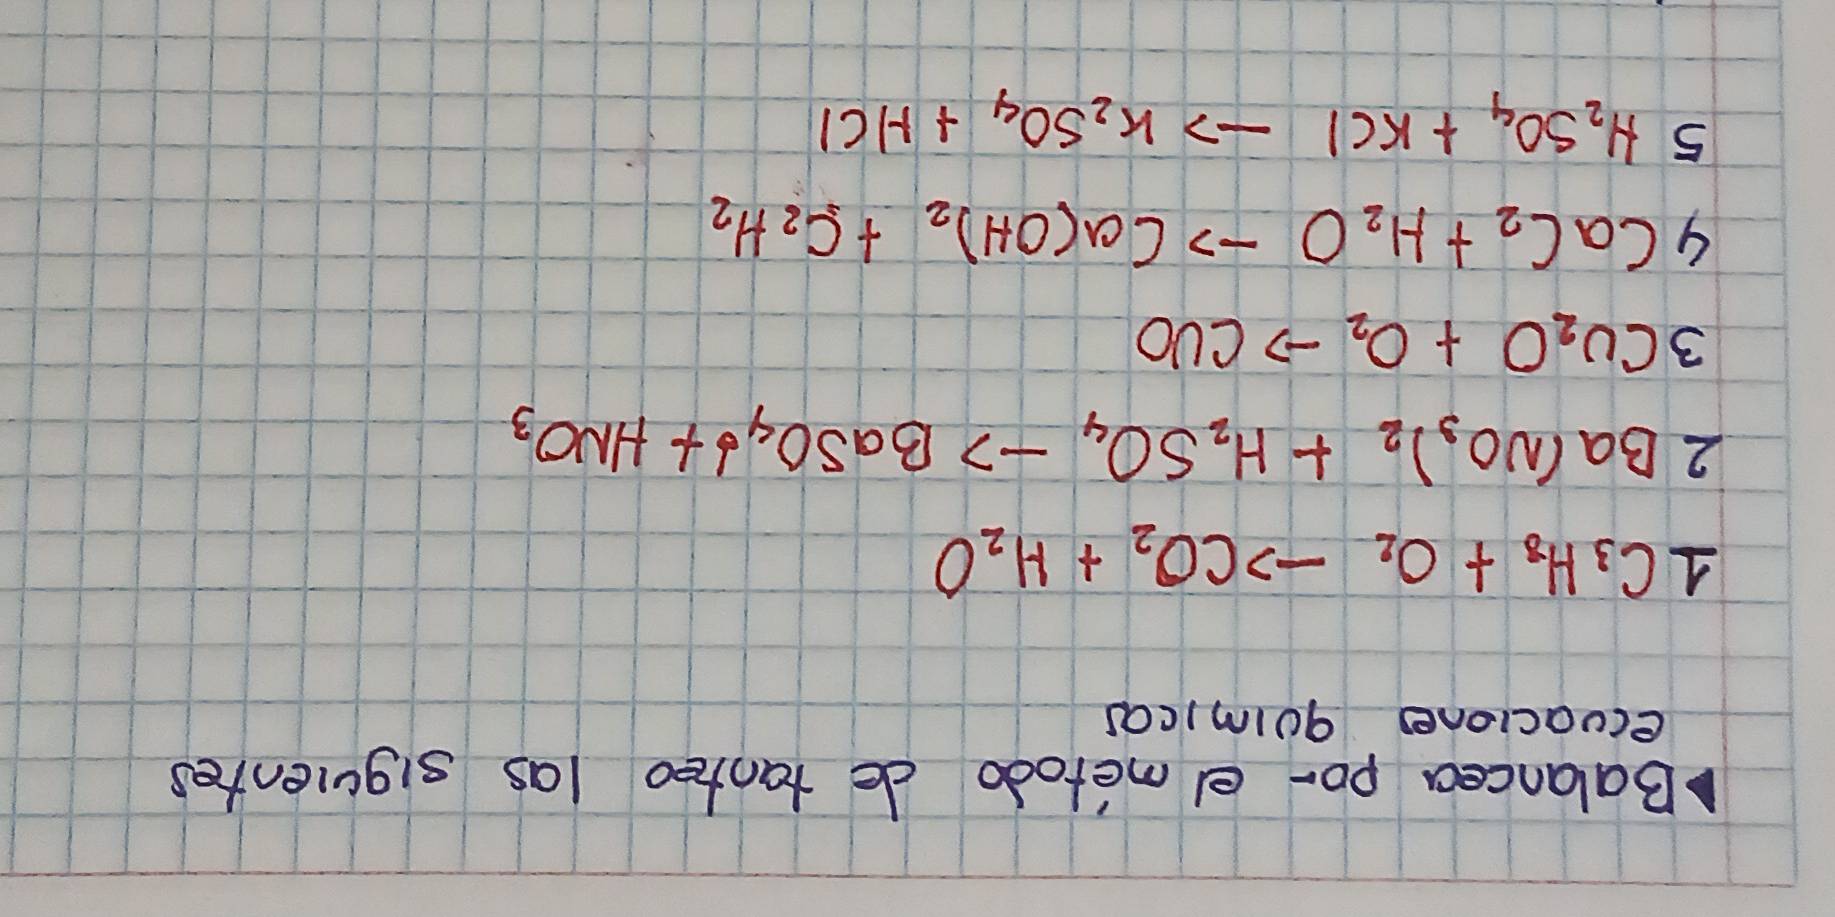 ▶Balancea por el método de tanteo las siguientes
ecuaciones químicas
1 C₃H₈ + O₂ → CO₂ + H₂O
2 Ba(NO₃)₂ + H₂SO₄ → BaSO₄↓ + HNO₃
3 Cu₂O + O₂ → CuO
4 CaC₂ + H₂O → Ca(OH)₂ + C₂H₂
5 H₂SO₄ + KCl → K₂SO₄ + HCl